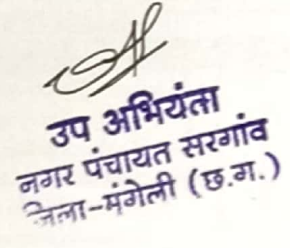 उप अभियंता
नगर पंचायत सरगांव
जिला-मुंगेली (छ.ग.)